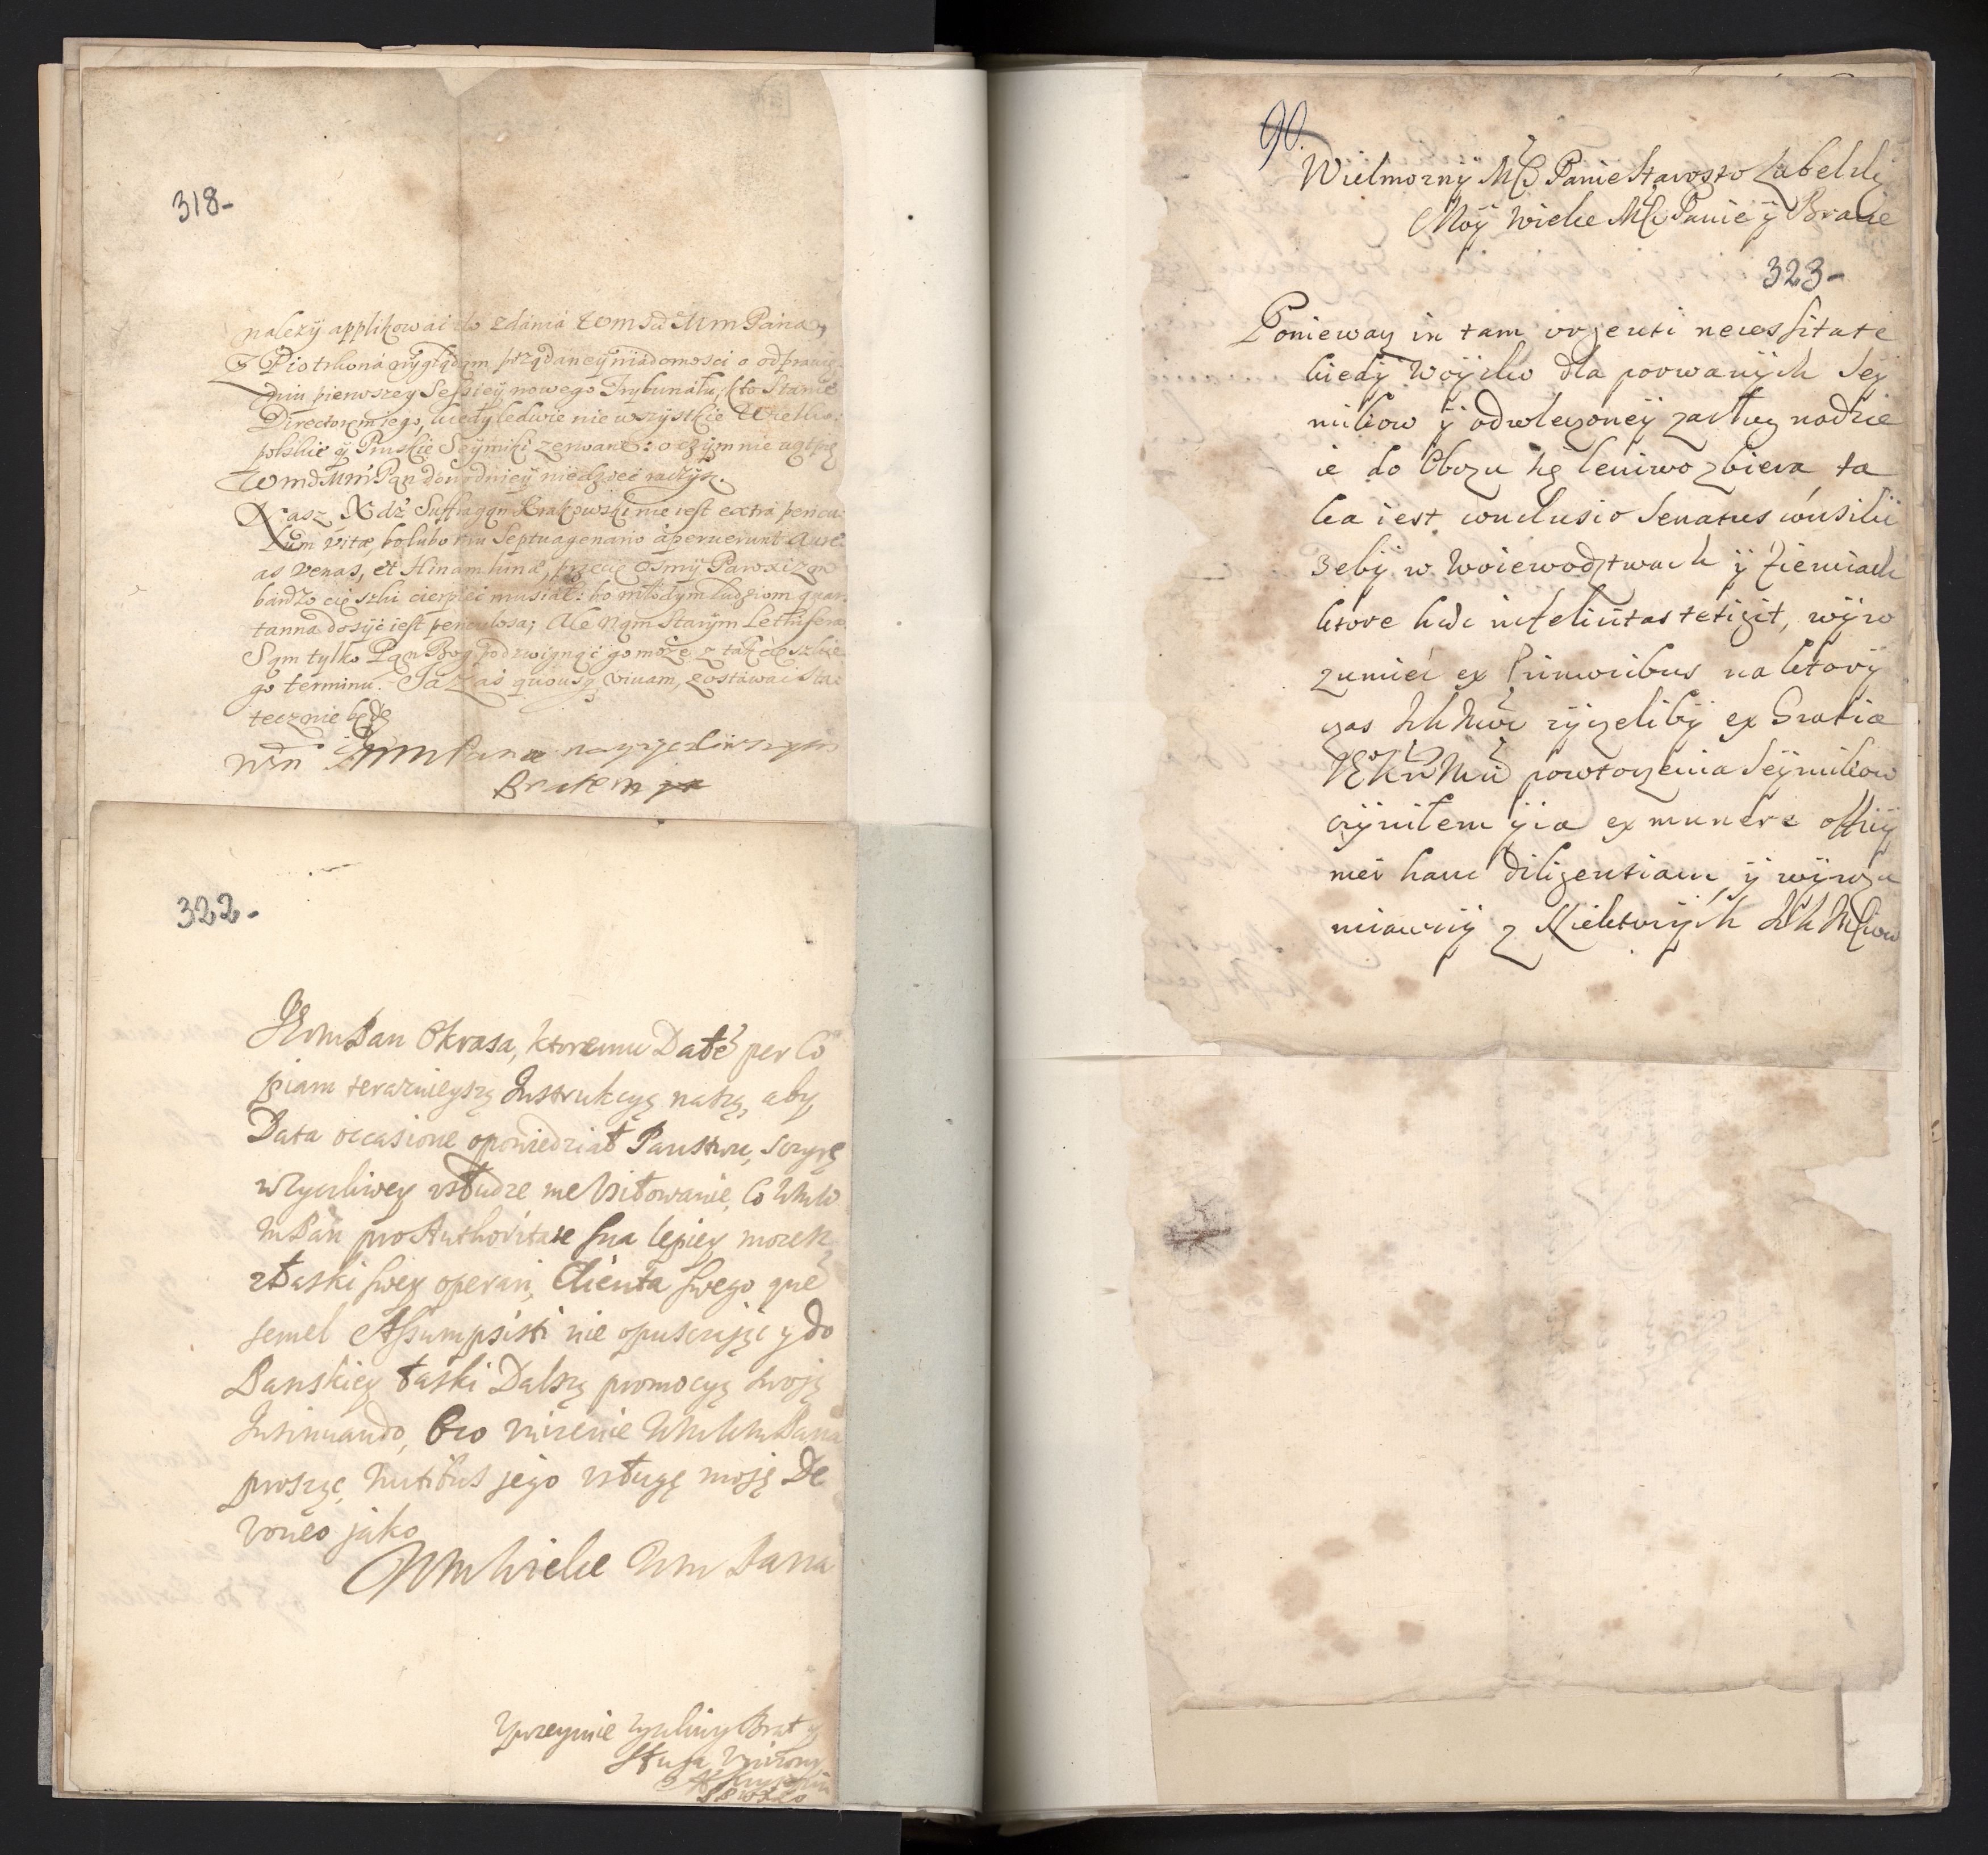 318-
należy applikować do zdania WmSd Mm Pana,
Z Piotrkona wyglądam pożądaney wiadomosci o odprawie
dniu pierwszey Sessiey nowego Trybunału; kto Stanie
Directorem iego, kiedy ledwie nie wszystkie Wielko:
polskie y Pruskie Seymiki zerwane: o czym nie wątpię
Nasz Xdz Suffragan Krakowski nie iest extra pericu:
lum vitæ, bo lubo mu Septuagenario aperuerunt aure:
as venas, et
bardzo cięszki cierpieć musiał: bo młodym ludziom quar:
tanna dosyć iest periculosa; Ale Nam Starym Lethifera
Sam tylko Pan Bog podzwignąć go może z tak cięszkie
go terminu. Ja zaś quousq vivam, zostawać sta:
tecznie będę
Wm Mm Pana nayzyczliwszym
Bratem
322-
JEom Pan Okrasa, ktoremu Dałē per Co
piam teraznieyszą Instrukcyą naszą, aby
Data occasione opowiedział Panstwu, sczyrę
w zyczliwey vsłudze me Vsiłowanie, Co WMW
MPan pro Authoritate sua lepiey mozesz
złaski swey operari, Clienta swego que
semel Assumpsisti nie opusczając y do
Panskiey łaski Dalszą promocyą swoją
Insinuando, Oto vnizenie WMMMPana
proszę, Nutibus jego vsługę moję De
voueo jako
WM Wielce Mm Pana
Vprzeymie zyczliwy Brat y
sługa Vnizony
90.
Wielmozny MCi Panie Starosto Lubelski
Moy wielce MCi Panie y Bracie
323-
Ponieway in tam vrgenti necessitate
kiedy Woysko dla porwanych Sey
mikow y odwleczoney zasług nadzie
ie do Obozu się leniwo zbiera, ta
ka iest conclusio Senatus consilii
zeby w Woiewodztwach y Ziemiach
ktore haec infelicitas tetigit, wyro
zumieć ex Primoribus na ktory
czas IchMci zyczeliby ex Gratia
JEKrMci powtorzenia Seymikow
czyniłem y ia ex munere officij
mei hanc diligentiam, y wyrozu
miawszy z Niektorych IchMciow